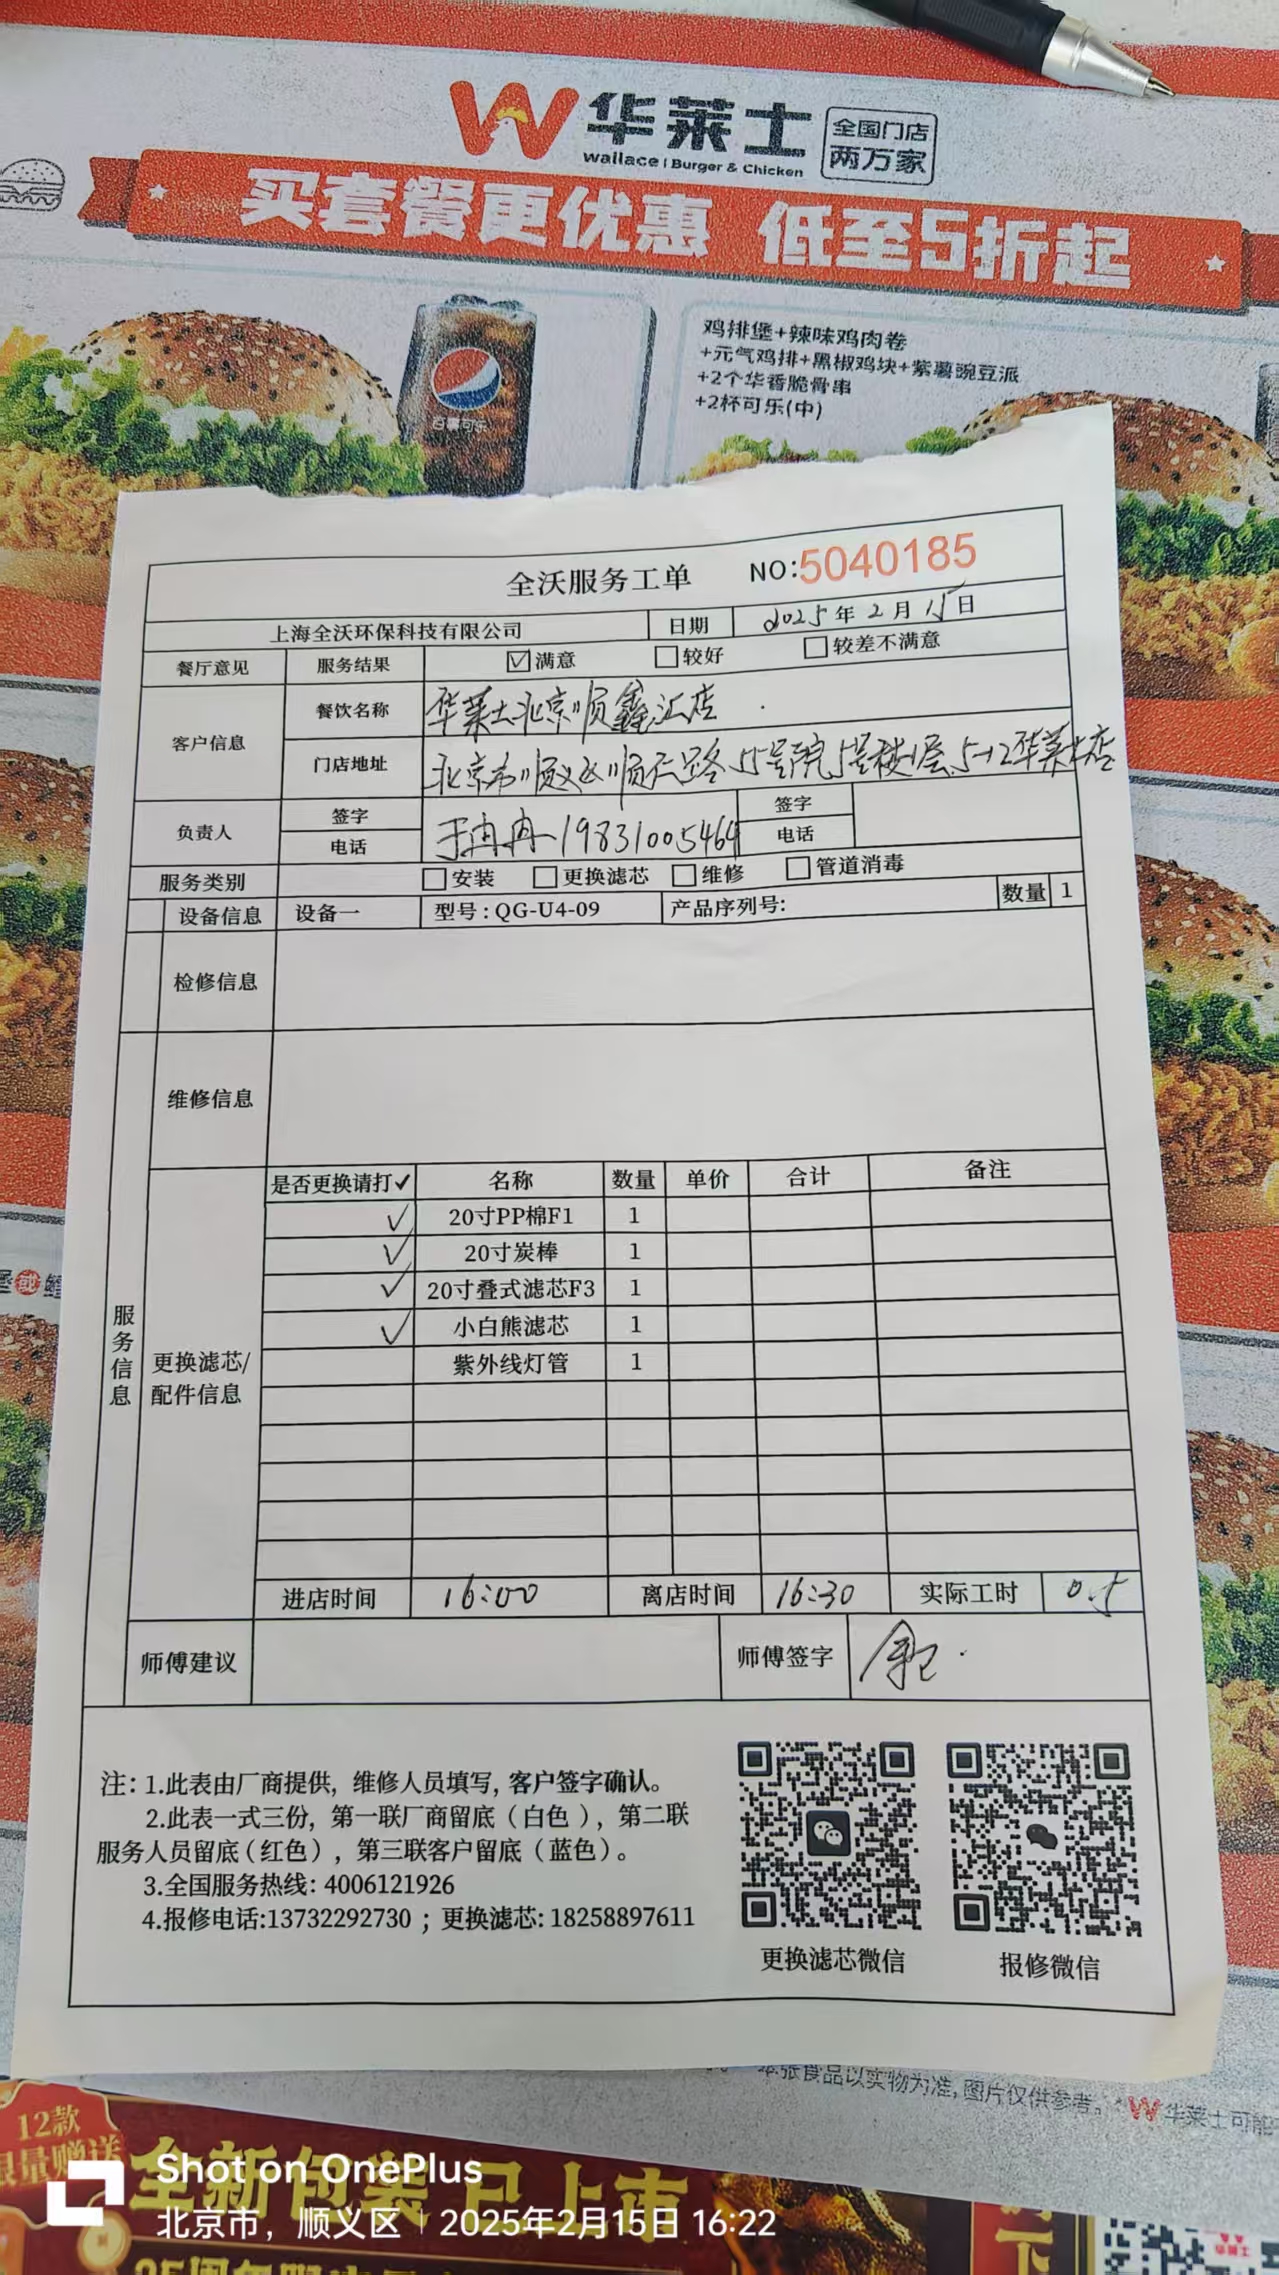 华莱士
Wallace | Burger & Chicken
全国门店
两万家
买套餐更优惠 低至5折起
鸡排堡+辣味鸡肉卷
+元气鸡排+黑椒鸡块+紫薯豌豆派
+2个华香脆骨串
+2杯可乐(中)
百事可乐
全沃服务工单 NO:5040185
上海全沃环保科技有限公司 日期 2025年2月15日
餐厅意见 服务结果 ☑满意 □较好 □较差不满意
客户信息 餐饮名称 华莱士北京顺鑫汇店
门店地址 北京市顺义区顺仁路15号院5号楼1层5-12华莱士店
负责人 签字 电话 于冉冉 19831005464 签字 电话
服务类别 □安装 □更换滤芯 □维修 □管道消毒
设备信息 设备一 型号:QG-U4-09 产品序列号: 数量 1
检修信息
维修信息
服务信息
更换滤芯/
配件信息
是否更换请打✓ 名称 数量 单价 合计 备注
✓ 20寸PP棉F1 1
✓ 20寸炭棒 1
✓ 20寸叠式滤芯F3 1
✓ 小白熊滤芯 1
紫外线灯管 1
进店时间 16:00 离店时间 16:30 实际工时 0.5
师傅建议 师傅签字
注: 1.此表由厂商提供, 维修人员填写, 客户签字确认。
2.此表一式三份, 第一联厂商留底(白色), 第二联
服务人员留底(红色), 第三联客户留底(蓝色)。
3.全国服务热线: 4006121926
4.报修电话:13732292730 ; 更换滤芯: 18258897611
更换滤芯微信 报修微信
食品以实物为准, 图片仅供参考。
华莱士可能
12款
限量赠送
全新包装已上市
Shot on OnePlus
北京市, 顺义区 | 2025年2月15日 16:22